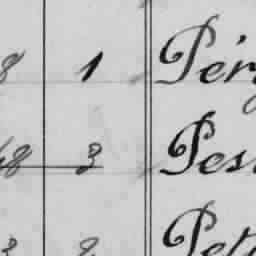 8 1 Pér
48 3 Pes
3 2 Pet